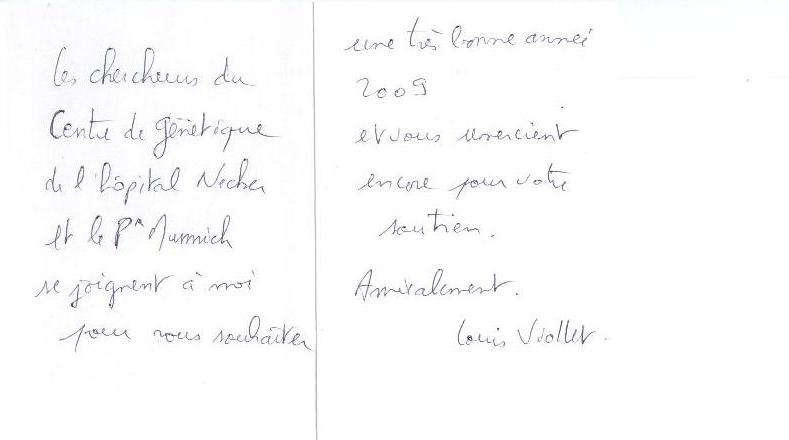 Les chercheurs du
Centre de génétique
de l'hôpital Necker
et le Pr Munnich
se joignent à moi
pour vous souhaiter
une très bonne année
2009
et vous remercient
encore pour votre
soutien.
Amicalement.
Louis Viollet.